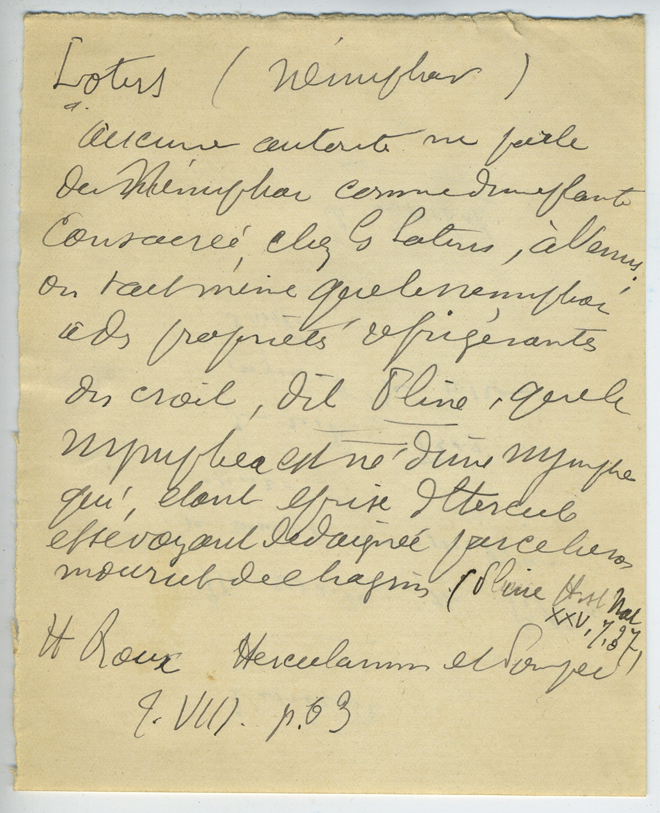 Lotus ( Nénuphar )
"Aucune autorité ne parle
du Nénuphar comme d'une plante
consacrée, chez les Latins, à Vénus,
on sait même que le nénuphar
a des propriétés réfrigérantes
On croit, dit Pline, que le
nymphea est né d'une nymphe
qui, étant éprise d'Hercule
et se voyant dédaignée par ce héros
mourut de chagrin (Pline Hist Nat
XXV, 7, 37)
H Roux Herculanum et Pompei
t. VIII. p. 63